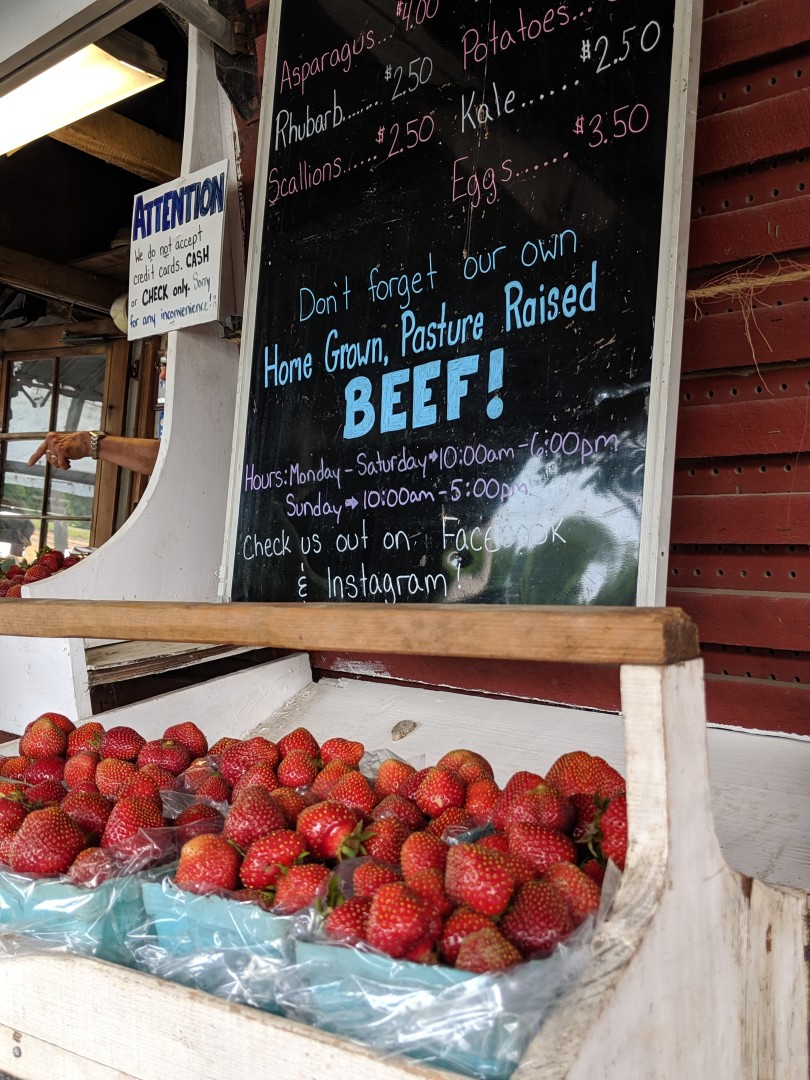 Asparagus... $4.00
Rhubarb...... $2.50
Scallions...... $2.50
Potatoes...
Kale...... $2.50
Eggs...... $3.50
Don't forget our own
Home Grown, Pasture Raised
BEEF!
Hours: Monday - Saturday → 10:00am - 6:00pm
Sunday → 10:00am - 5:00pm
Check us out on Facebook
& Instagram!
ATTENTION
We do not accept
credit cards. CASH
or CHECK only. Sorry
for any inconvenience!!